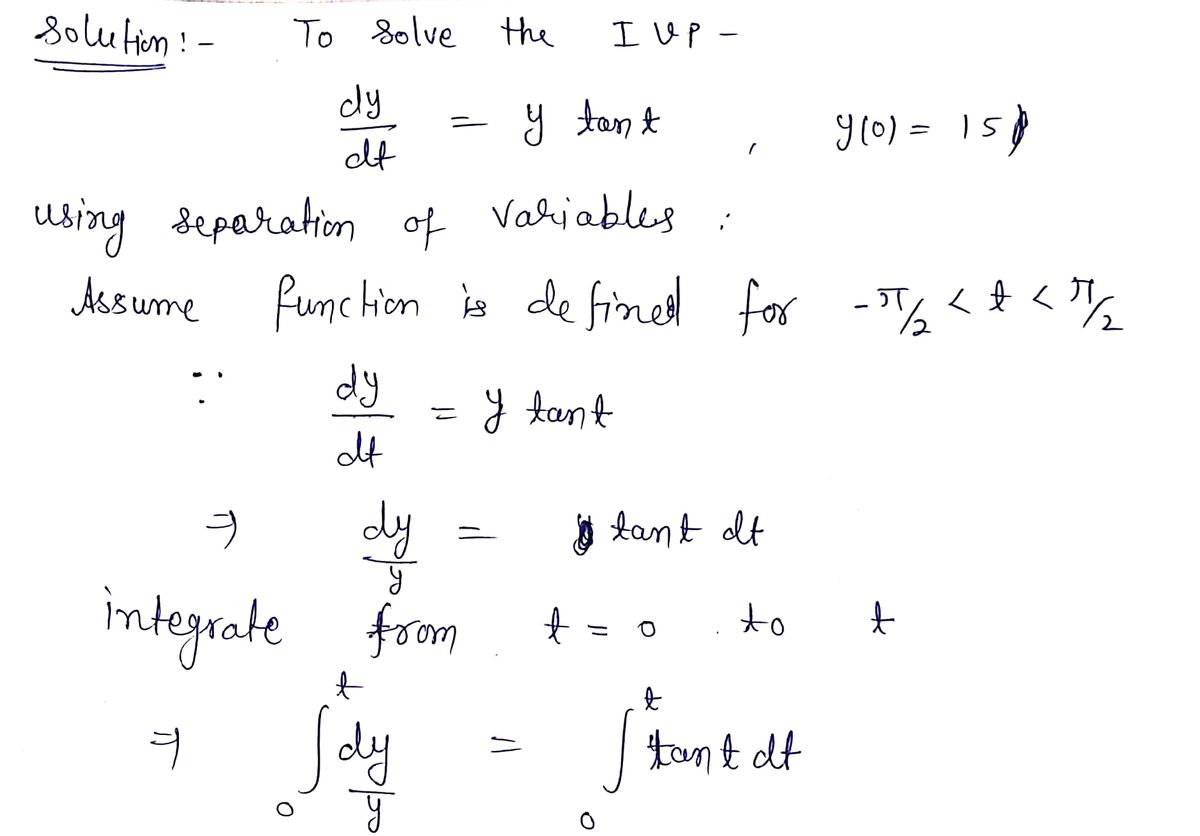 Solution :- To solve the IVP -
dy/dt = y tan t , y(0) = 15
using separation of variables :
Assume function is defined for -π/2 < t < π/2
∵ dy/dt = y tan t
⇒ dy/y = tan t dt
integrate from t = 0 to t
⇒ ∫₀ᵗ dy/y = ∫₀ᵗ tan t dt